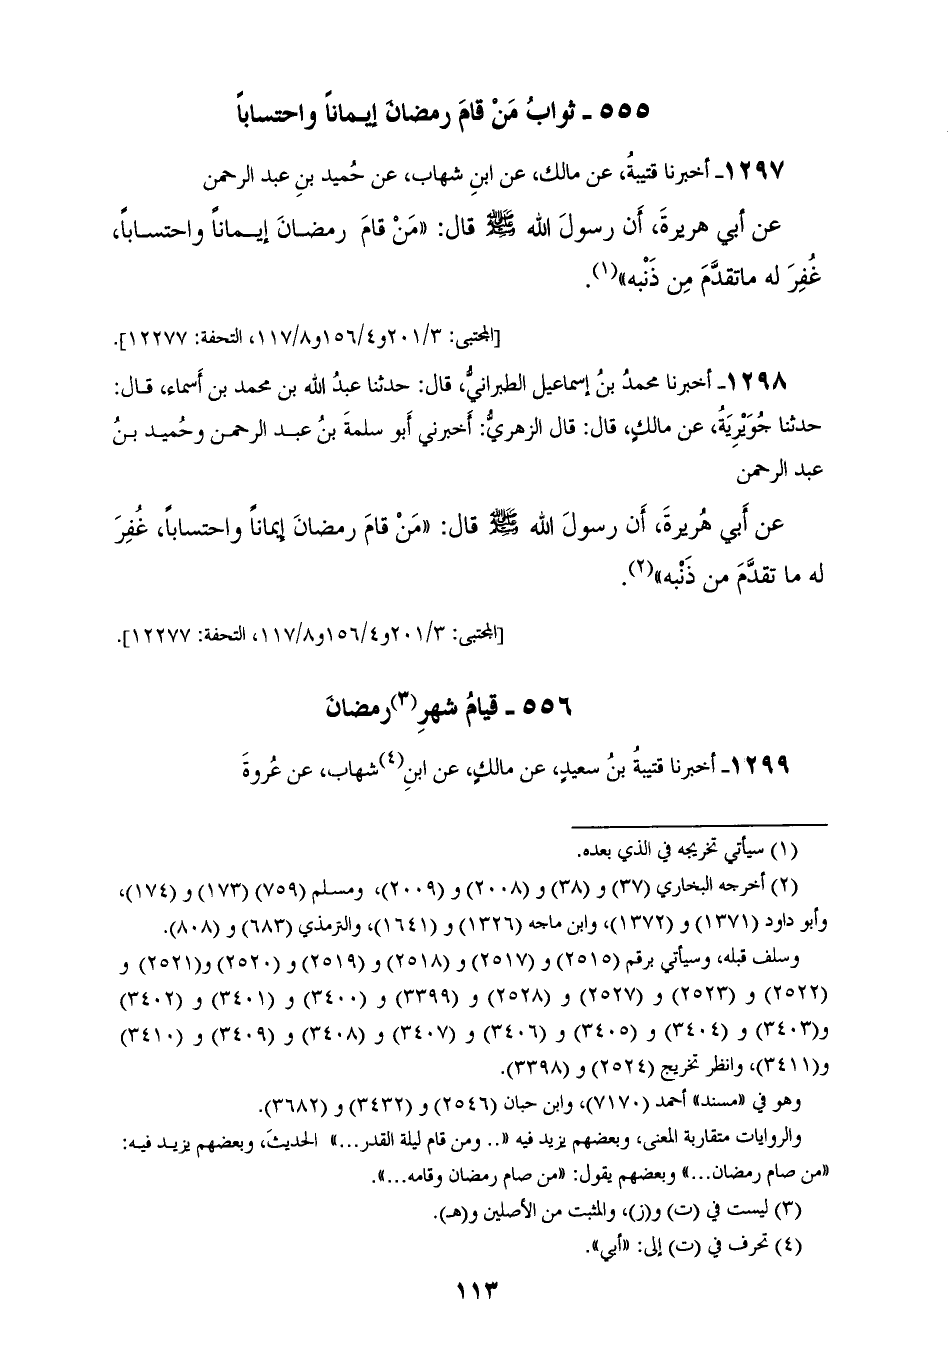 ٥٥٥ ـ ثوابُ مَنْ قامَ رمضانَ إيـماناً واحتساباً
١٢٩٧ـ أخبرنا قتيبةُ، عن مالك، عن ابنِ شهاب، عن حُميد بنِ عبد الرحمن
عن أبي هريرةَ، أن رسولَ الله ﷺ قال: «مَنْ قامَ رمضـانَ إيــماناً واحتســاباً،
غُفِرَ له ماتقدَّمَ مِن ذَنْبه»(١).
[المجتبى: ٢٠١/٣و١٥٦/٤و١١٧/٨، التحفة: ١٢٢٧٧].
١٢٩٨ـ أخبرنا محمدُ بنُ إسماعيل الطبرانيُّ، قال: حدثنا عبدُ الله بن محمد بن أسماء، قـال:
حدثنا جُوَيْرِيَةُ، عن مالكٍ، قال: قال الزهريُّ: أخبرني أبو سلمةَ بنُ عبـد الرحمـن وحُميـد بـنُ
عبد الرحمن
عن أبي هُريرةَ، أن رسولَ الله ﷺ قال: «مَنْ قامَ رمضانَ إيماناً واحتساباً، غُفِرَ
له ما تقدَّمَ من ذَنْبه»(٢).
[المجتبى: ٢٠١/٣و١٥٦/٤و١١٧/٨، التحفة: ١٢٢٧٧].
٥٥٦ ـ قيامُ شهرِ(٣) رمضانَ
١٢٩٩ـ أخبرنا قتيبةُ بنُ سعيدٍ، عن مالكٍ، عن ابنِ(٤) شهاب، عن عُروةَ
(١) سيأتي تخريجه في الذي بعده.
(٢) أخرجه البخاري (٣٧) و (٣٨) و (٢٠٠٨) و (٢٠٠٩)، ومسلم (٧٥٩) (١٧٣) و (١٧٤)،
وأبو داود (١٣٧١) و (١٣٧٢)، وابن ماجه (١٣٢٦) و (١٦٤١)، والترمذي (٦٨٣) و (٨٠٨).
وسلف قبله، وسيأتي برقم (٢٥١٥) و (٢٥١٧) و (٢٥١٨) و (٢٥١٩) و (٢٥٢٠) و(٢٥٢١) و
(٢٥٢٢) و (٢٥٢٣) و (٢٥٢٧) و (٢٥٢٨) و (٣٣٩٩) و (٣٤٠٠) و (٣٤٠١) و (٣٤٠٢)
و(٣٤٠٣) و (٣٤٠٤) و (٣٤٠٥) و (٣٤٠٦) و (٣٤٠٧) و (٣٤٠٨) و (٣٤٠٩) و (٣٤١٠)
و(٣٤١١)، وانظر تخريج (٢٥٢٤) و (٣٣٩٨).
وهو في «مسند» أحمد (٧١٧٠)، وابن حبان (٢٥٤٦) و (٣٤٣٢) و (٣٦٨٢).
والروايات متقاربة المعنى، وبعضهم يزيد فيه «.. ومن قام ليلة القدر...» الحديثَ، وبعضهم يزيـد فيـه:
«من صام رمضان...» وبعضهم يقول: «من صام رمضان وقامه...».
(٣) ليست في (ت) و(ز)، والمثبت من الأصلين و(هـ).
(٤) تحرف في (ت) إلى: «أبي».
١١٣